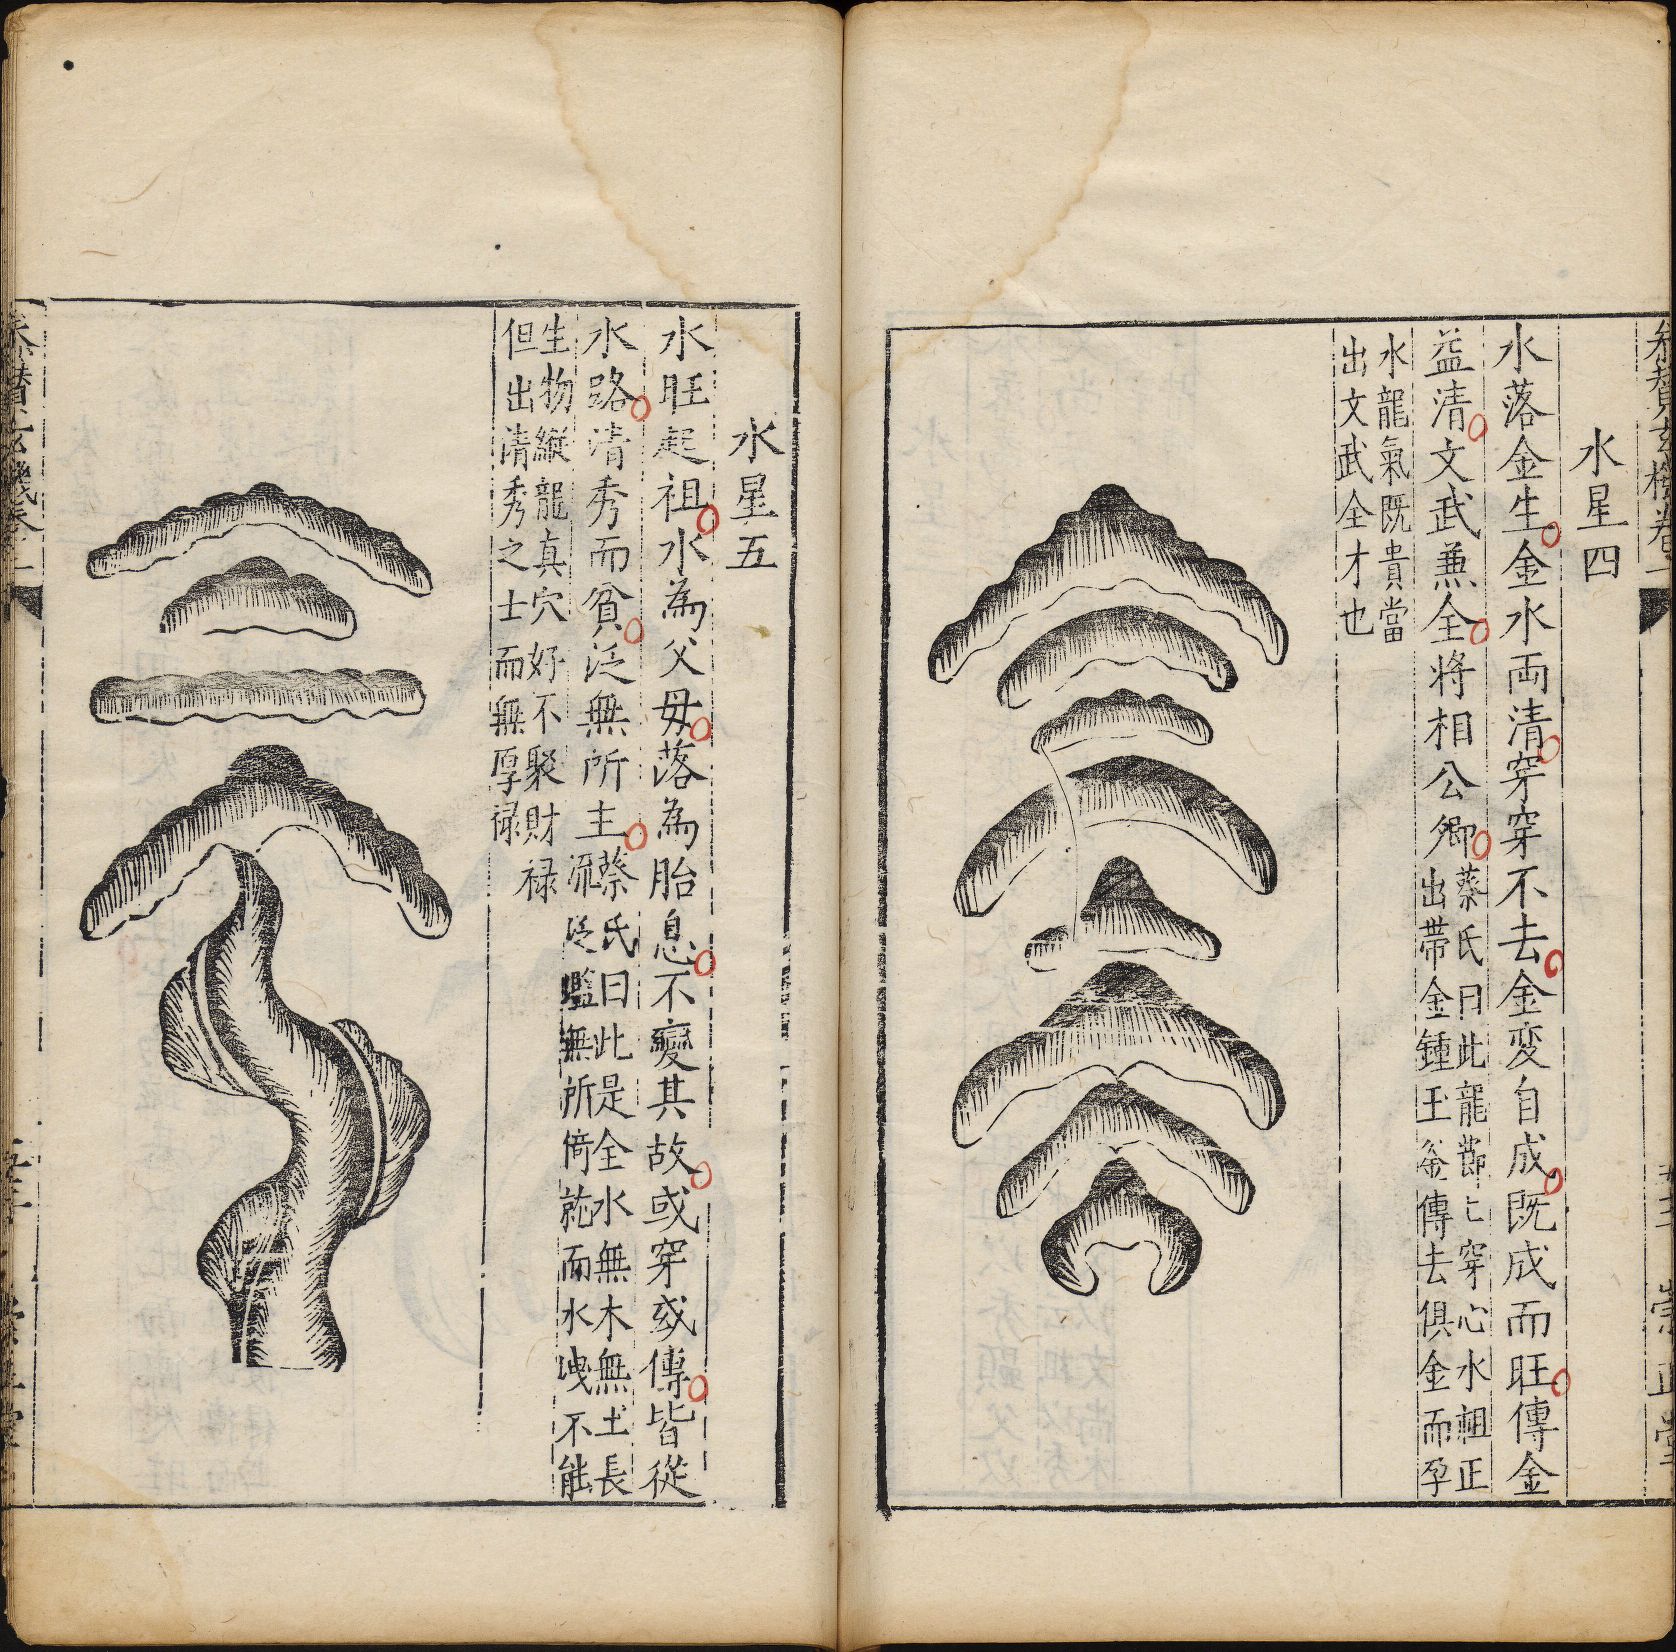 水星四
水落金生金水両清穿穿不去金変自成既成而旺傳金
益清文武兼全將相公卿
蔡氏曰此龍節〻穿心水祖正
出帶金鍾玉釜傳去俱金而孕
水龍氣既貴當
出文武全才也
水星五
水旺起祖水為父毋落為胎息不變其故或穿或傳皆從
水路清秀而貧泛無所主
蔡氏曰此是全水無木無土長
流泛濫無所倚託而水洩不能
生物縱龍真穴好不聚財禄
但出清秀之士而無厚禄